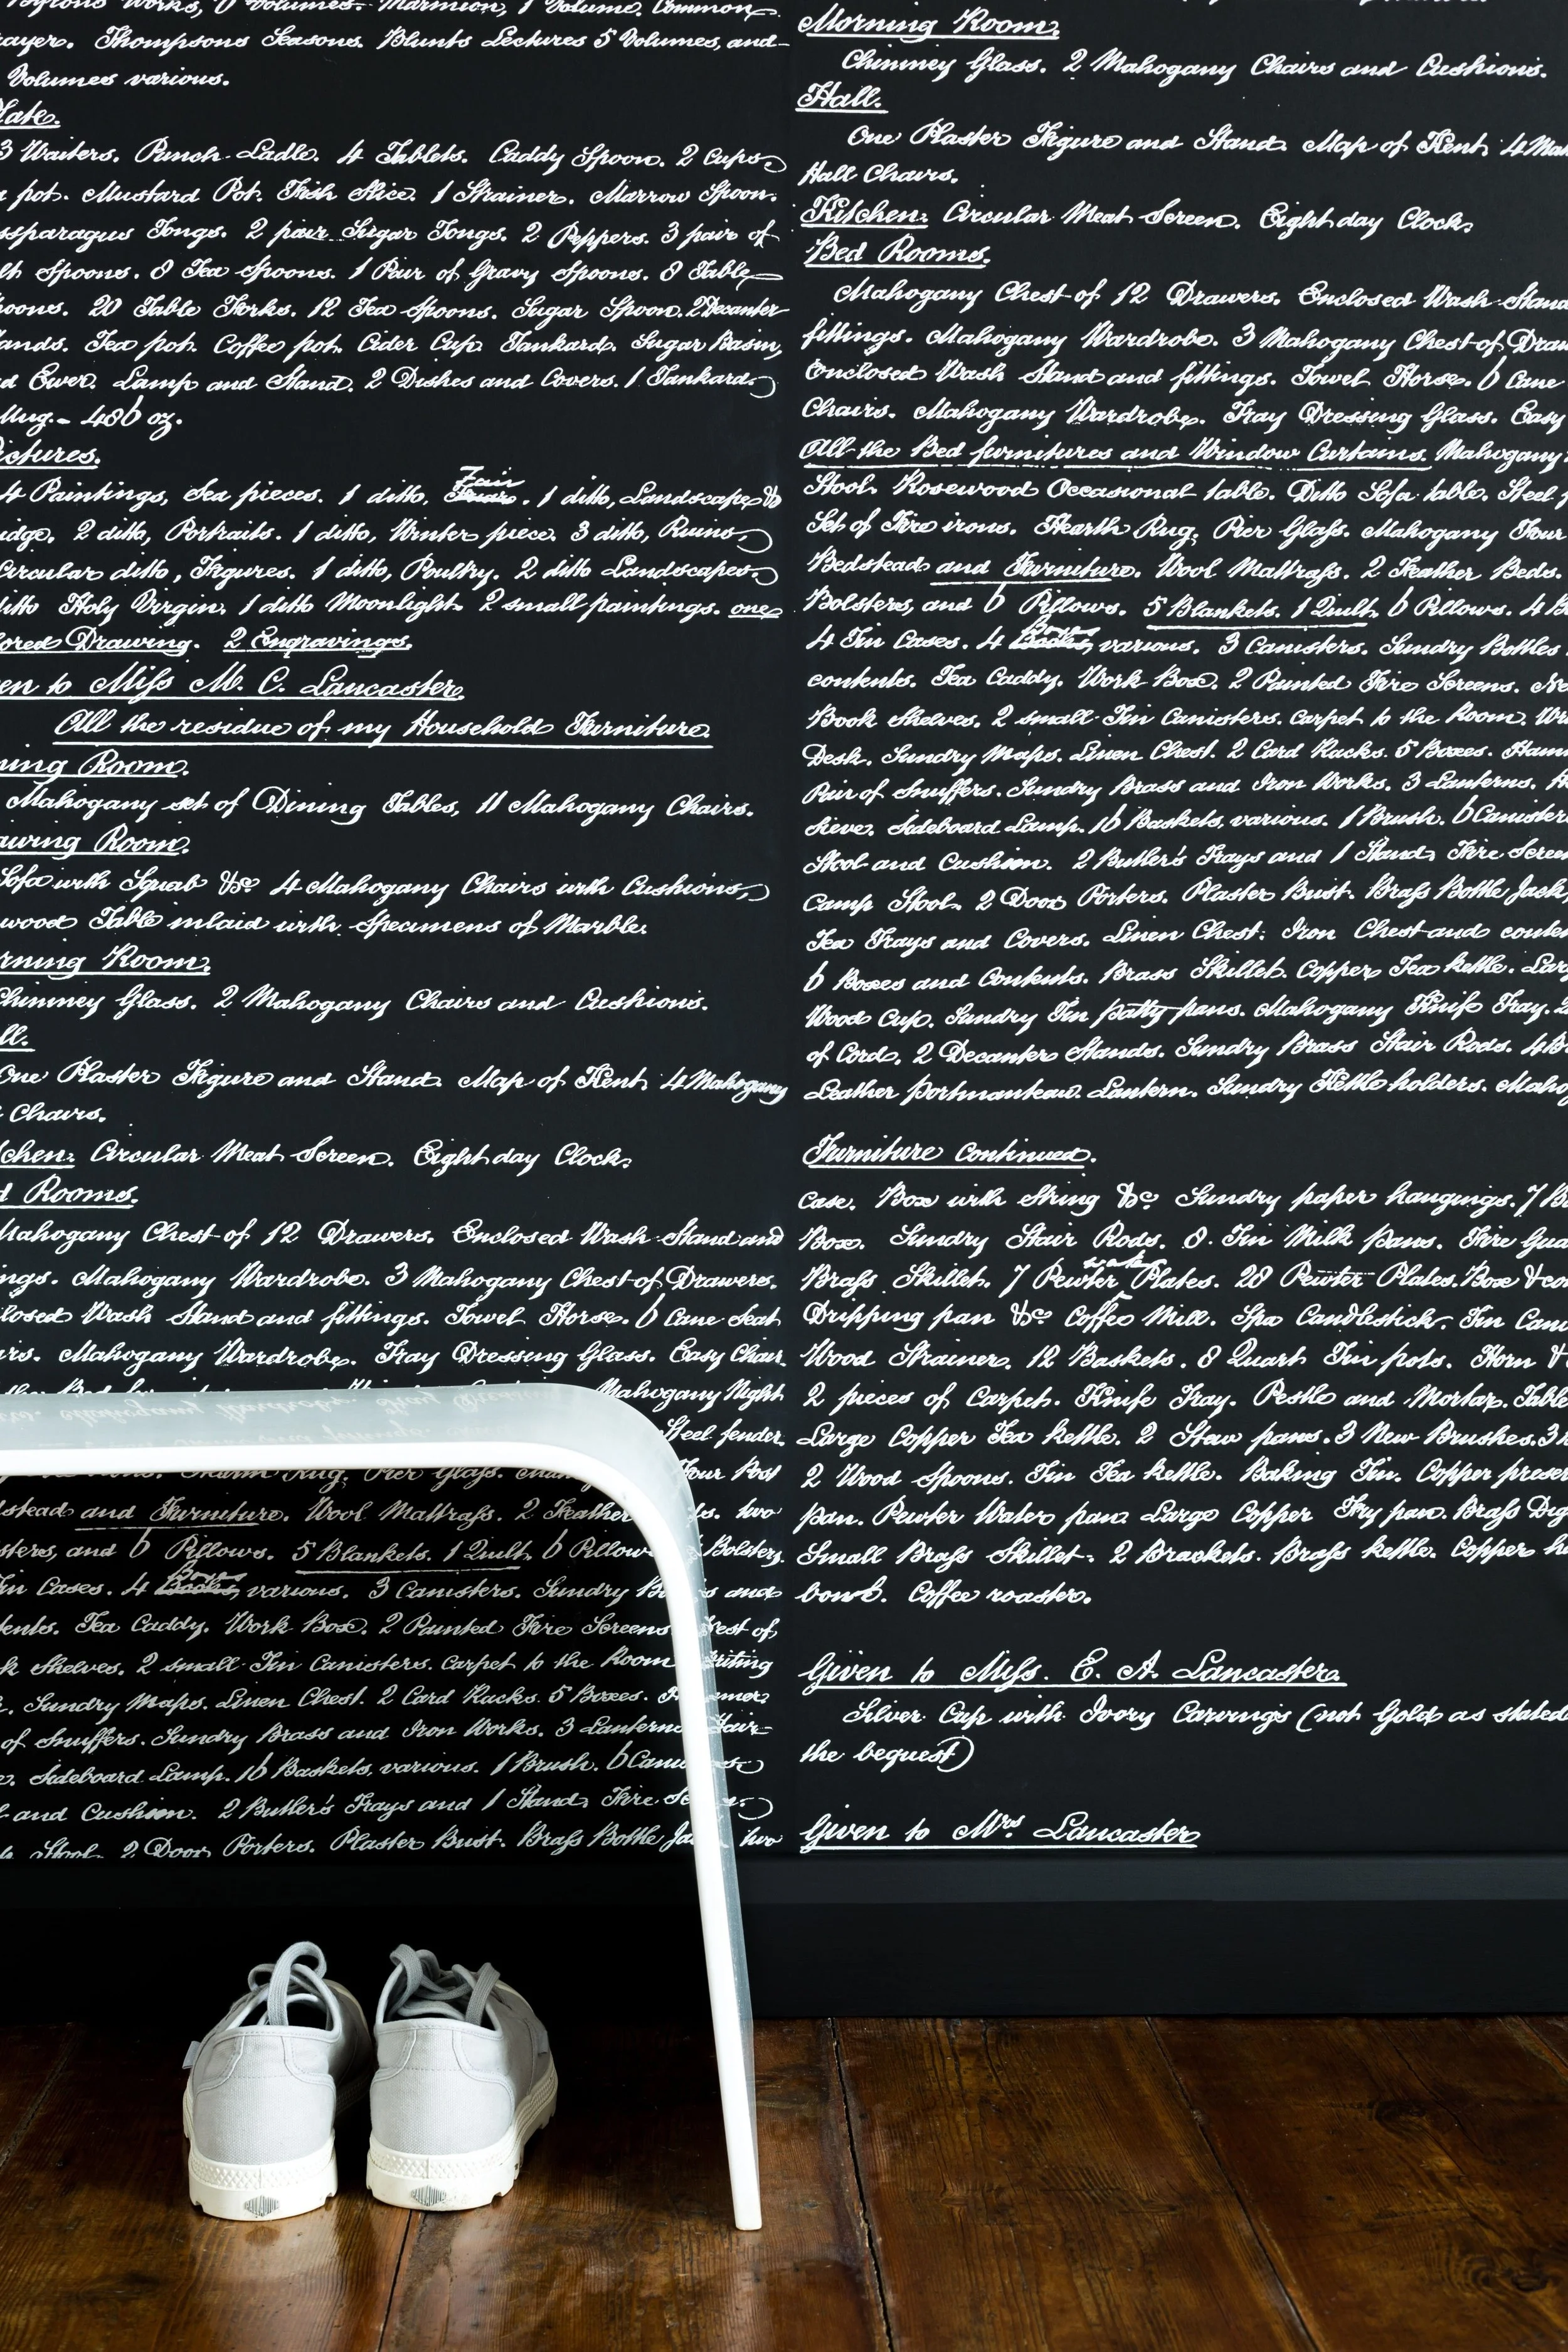 Works, 6 Volumes. Marmion, 1 Volume. Common
rayer. Thompsons Seasons. Blunts Lectures 5 Volumes, and
Volumes various.
late.
3 Waiters. Punch Ladle. 4 Tablets. Caddy Spoon. 2 Cups.
pot. Mustard Pot. Fish Slice. 1 Strainer. Marrow Spoon.
ssparagus Tongs. 2 pair Sugar Tongs. 2 Peppers. 3 pair of
lt Spoons. 8 Tea Spoons. 1 Pair of Gravy Spoons. 8 Table
oons. 20 Table Forks. 12 Tea Spoons. Sugar Spoon. 2 Decanter
ands. Tea pot. Coffee pot. Cider Cup. Tankard. Sugar Basin,
d Ewer. Lamp and Stand. 2 Dishes and Covers. 1 Tankard.
Mug. - 486 oz.
ictures.
4 Paintings, Sea pieces. 1 ditto, Fair. 1 ditto, Landscape &
idge. 2 ditto, Portraits. 1 ditto, Winter piece. 3 ditto, Ruins,
Circular ditto, Figures. 1 ditto, Poultry. 2 ditto Landscapes.
itto Holy Virgin. 1 ditto Moonlight. 2 small paintings. one
ored Drawing. 2 Engravings.
en to Miss M. C. Lancaster.
All the residue of my Household Furniture.
ning Room.
Mahogany set of Dining Tables, 11 Mahogany Chairs.
awing Room.
Sofa with Squab &c 4 Mahogany Chairs with Cushions,
wood Table inlaid with Specimens of Marble.
rning Room.
Chimney Glass. 2 Mahogany Chairs and Cushions.
ll.
One Plaster Figure and Stand. Map of Kent. 4 Mahogany
Chairs.
tchen: Circular Meat Screen. Eight day Clock.
d Rooms.
Mahogany Chest of 12 Drawers. Enclosed Wash Stand and
ings. Mahogany Wardrobe. 3 Mahogany Chest of Drawers.
losed Wash Stand and fittings. Towel Horse. 6 Cane Seat
irs. Mahogany Wardrobe. Tray Dressing Glass. Easy Chair.
Mahogany Night
Steel fender.
Hearth Rug. Pier Glass. Four Post
dstead and Furniture. Wool Mattrass. 2 Feather ds. two
sters, and 6 Pillows. 5 Blankets. 1 Quilt. 6 Pillow Bolsters.
Tin Cases. 4 Boxes, various. 3 Canisters. Sundry B s and
ents. Tea Caddy. Work Box. 2 Painted Fire Screens Nest of
k Shelves. 2 small Tin Canisters. Carpet to the Room Writing
. Sundry Maps. Linen Chest. 2 Card Racks. 5 Boxes. Hammer.
of Snuffers. Sundry Brass and Iron Works. 3 Lanterns Hair
e. Sideboard Lamp. 16 Baskets, various. 1 Brush. 6 Canisters.
l and Cushion. 2 Butler's Trays and 1 Stand. Fire Screen.
Stool. 2 Door Porters. Plaster Bust. Brass Bottle Jack. two
Morning Room.
Chimney Glass. 2 Mahogany Chairs and Cushions.
Hall.
One Plaster Figure and Stand. Map of Kent. 4 Mah
Hall Chairs.
Kitchen: Circular Meat Screen. Eight day Clock.
Bed Rooms.
Mahogany Chest of 12 Drawers. Enclosed Wash Stand
fittings. Mahogany Wardrobe. 3 Mahogany Chest of Draw
Enclosed Wash Stand and fittings. Towel Horse. 6 Cane
Chairs. Mahogany Wardrobe. Tray Dressing Glass. Easy
All the Bed furnitures and Window Curtains. Mahogany
Stool. Rosewood Occasional table. Ditto Sofa table. Steel f
Set of Fire irons. Hearth Rug. Pier Glass. Mahogany Four
Bedstead and Furniture. Wool Mattrass. 2 Feather Beds.
Bolsters, and 6 Pillows. 5 Blankets. 1 Quilt. 6 Pillows. 4 B
4 Tin Cases. 4 Boxes, various. 3 Canisters. Sundry Bottles
contents. Tea Caddy. Work Box. 2 Painted Fire Screens. Ne
Book Shelves. 2 small Tin Canisters. Carpet to the Room. Wri
Desk. Sundry Maps. Linen Chest. 2 Card Racks. 5 Boxes. Ham
Pair of Snuffers. Sundry Brass and Iron Works. 3 Lanterns. H
Sieve. Sideboard Lamp. 16 Baskets, various. 1 Brush. 6 Canister
Stool and Cushion. 2 Butler's Trays and 1 Stand. Fire Screen
Camp Stool. 2 Door Porters. Plaster Bust. Brass Bottle Jack.
Tea Trays and Covers. Linen Chest. Iron Chest and conten
6 Boxes and Contents. Brass Skillet. Copper Tea kettle. Lar
Wood Cup. Sundry Tin patty pans. Mahogany Knife Tray. 2
of Cord. 2 Decanter Stands. Sundry Brass Stair Rods. 4
Leather portmanteau. Lantern. Sundry Kettle holders. Mahog
Furniture Continued.
Case. Box with String &c Sundry paper hangings. 7 B
Box. Sundry Stair Rods. 8 Tin Milk pans. Fire Gua
Brass Skillet. 7 Pewter Plates. 28 Pewter Plates. Box & con
Dripping pan &c Coffee Mill. Spa Candlestick. Tin Can
Wood Strainer. 12 Baskets. 8 Quart Tin pots. Horn &
2 pieces of Carpet. Knife Tray. Pestle and Mortar. Table
Large Copper Tea kettle. 2 Stew pans. 3 New Brushes. 3
2 Wood Spoons. Tin Tea kettle. Baking Tin. Copper preser
pan. Pewter Water pan. Large Copper Fry pan. Brass Dig
Small Brass Skillet. 2 Brackets. Brass kettle. Copper h
bowl. Coffee roaster.
Given to Miss. E. A. Lancaster.
Silver Cup with Ivory Carvings (not Gold as stated
the bequest)
Given to Mrs. Lancaster